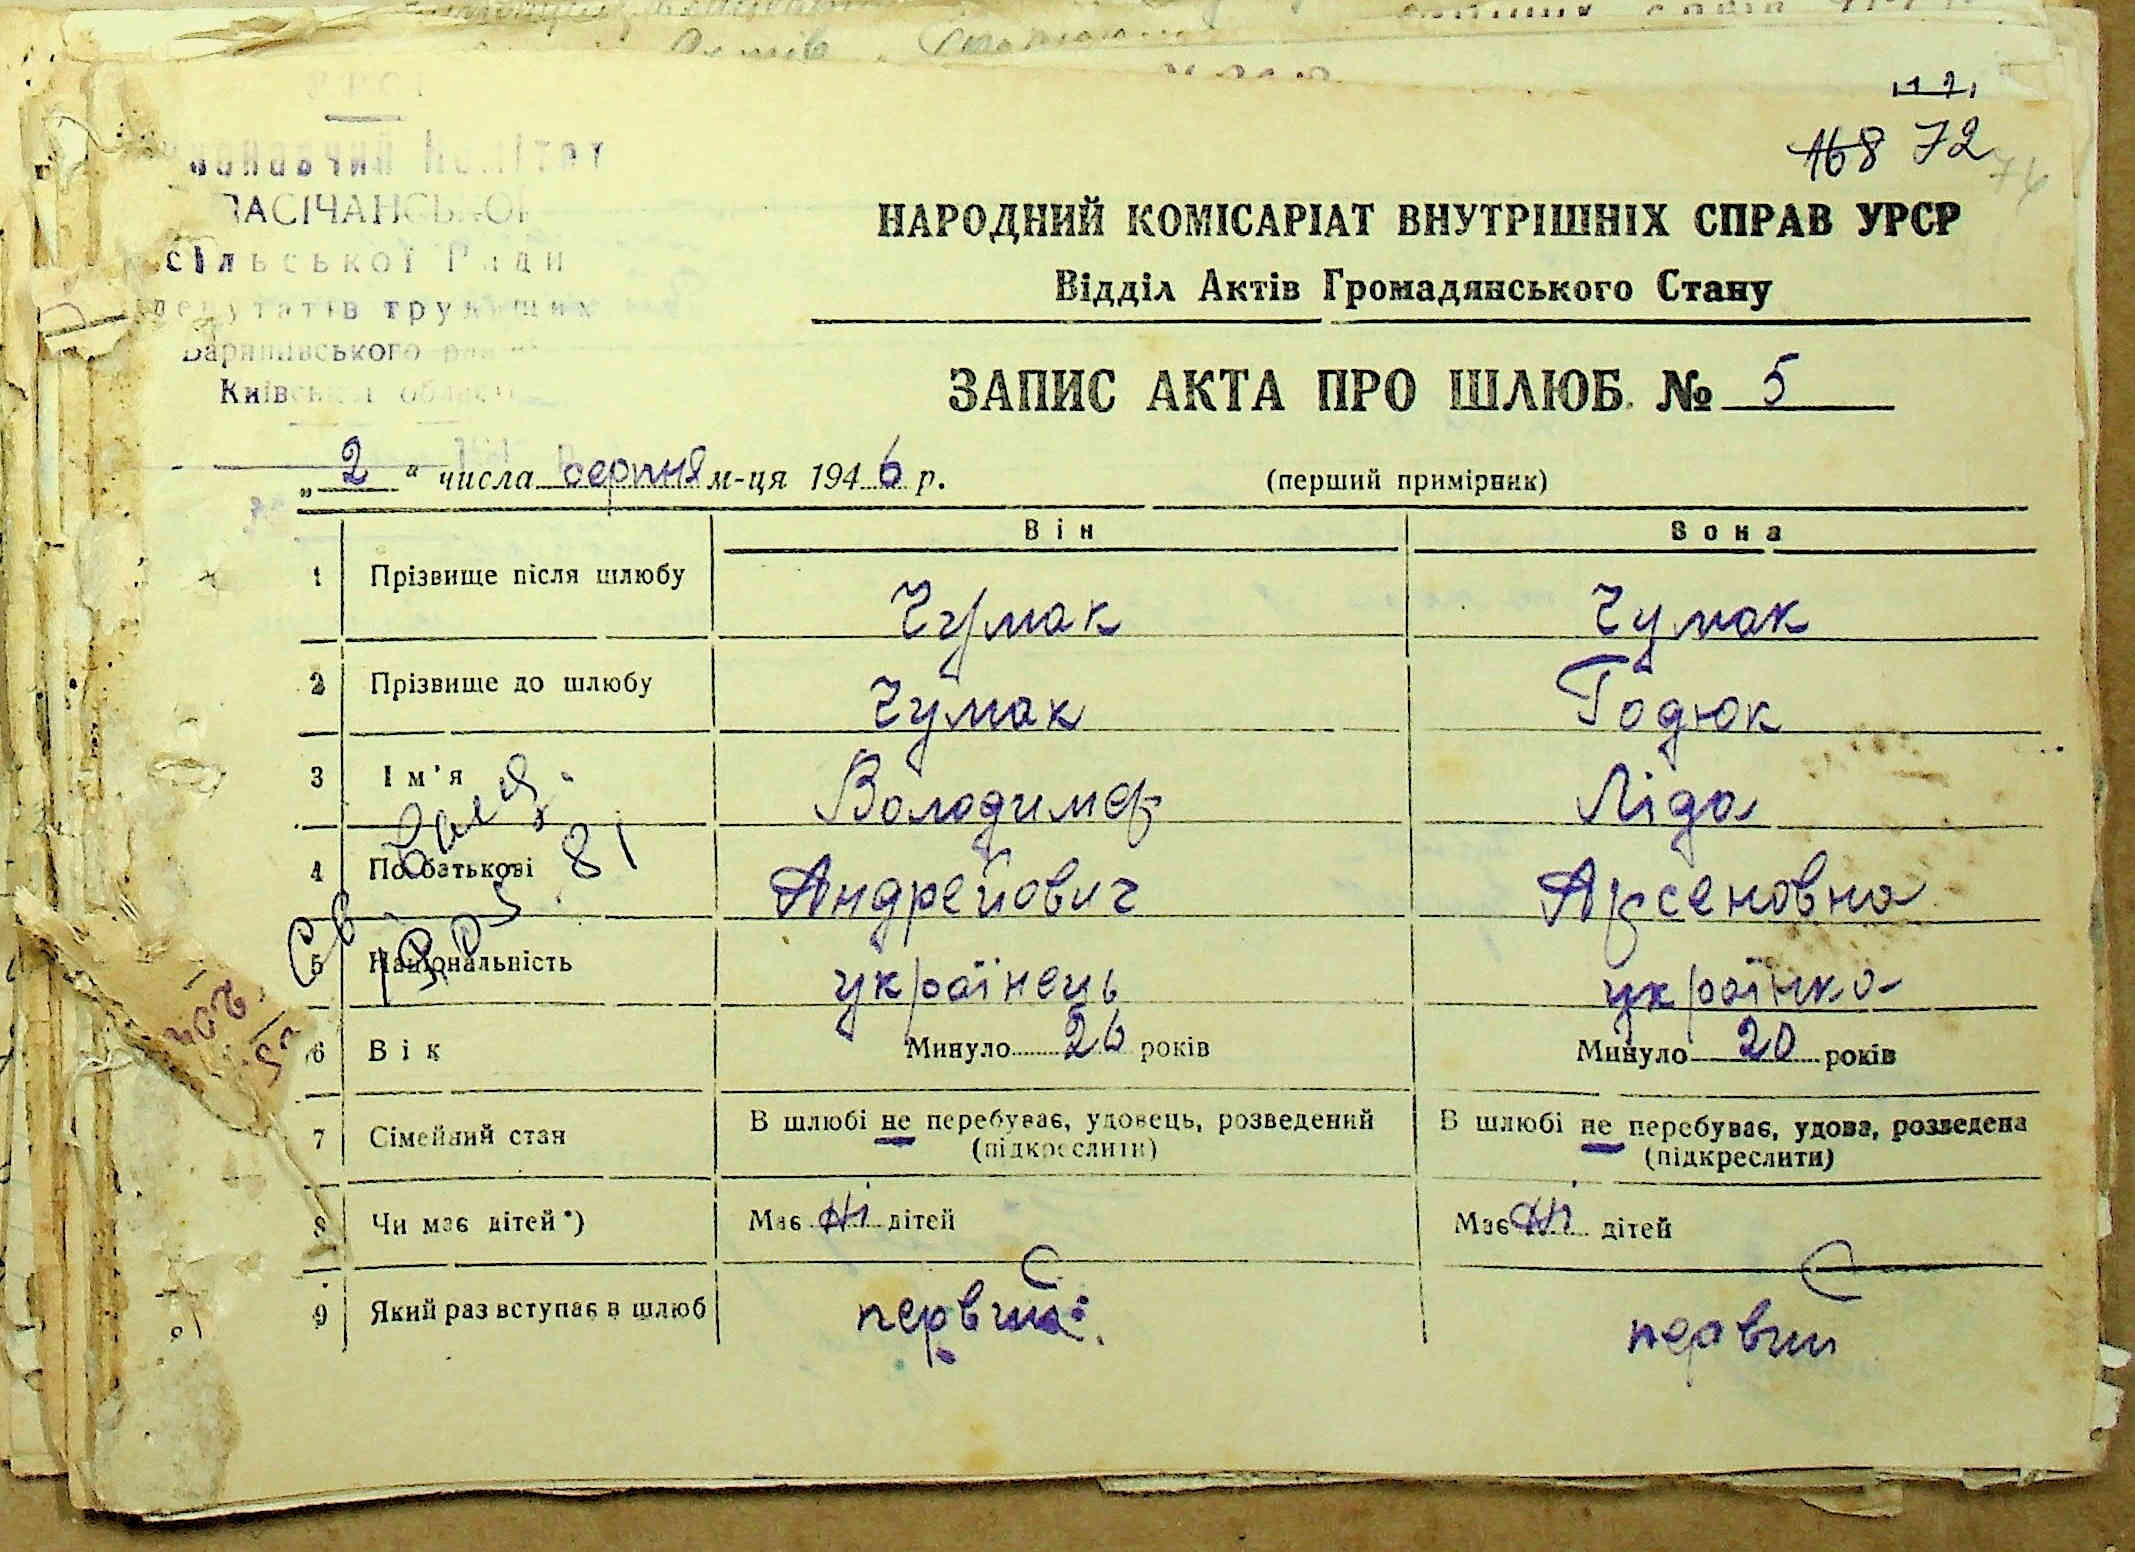 168 72 74
Комітет
ЗАСІЧАНСЬКОЇ
сільської Ради
депутатів трудящих
Баришівського
Київської області
НАРОДНИЙ КОМІСАРІАТ ВНУТРІШНІХ СПРАВ УРСР
Відділ Актів Громадянського Стану
ЗАПИС АКТА ПРО ШЛЮБ № 5
„2“ числа серпня м-ця 1946 р.
(перший примірник)
Він Вона
1 Прізвище після шлюбу Чумак Чумак
2 Прізвище до шлюбу Чумак Годюк
3 Ім'я Володимер Ліда
4 По батькові Андрейович Арсеновна
5 Національність українець українка
6 Вік Минуло 26 років Минуло 20 років
7 Сімейний стан В шлюбі не перебуває, удовець, розведений (підкреслити) В шлюбі не перебуває, удова, розведена (підкреслити)
8 Чи має дітей*) Має ні дітей Має ні дітей
9 Який раз вступає в шлюб первий первий